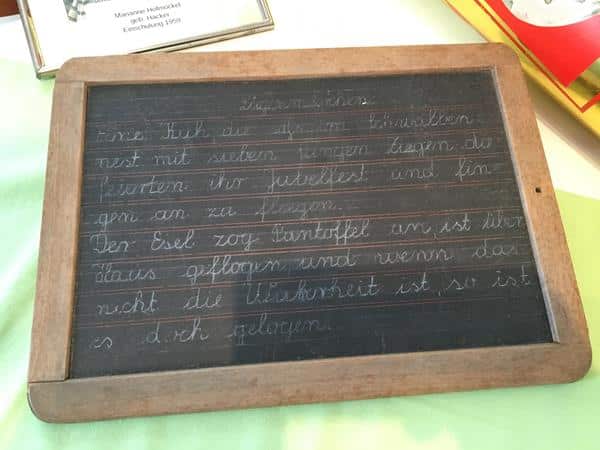 Marianne Hofmockel
geb. Hacker
Einschulung 1959
Lügenmärchen
Eine Kuh die saß im Schwalben
nest mit sieben jungen Ziegen die
feierten ihr Jubelfest und fin-
gen an zu fliegen.
Der Esel zog Pantoffel an, ist über
Haus geflogen und wenn das
nicht die Wahrheit ist, so ist
es doch gelogen.